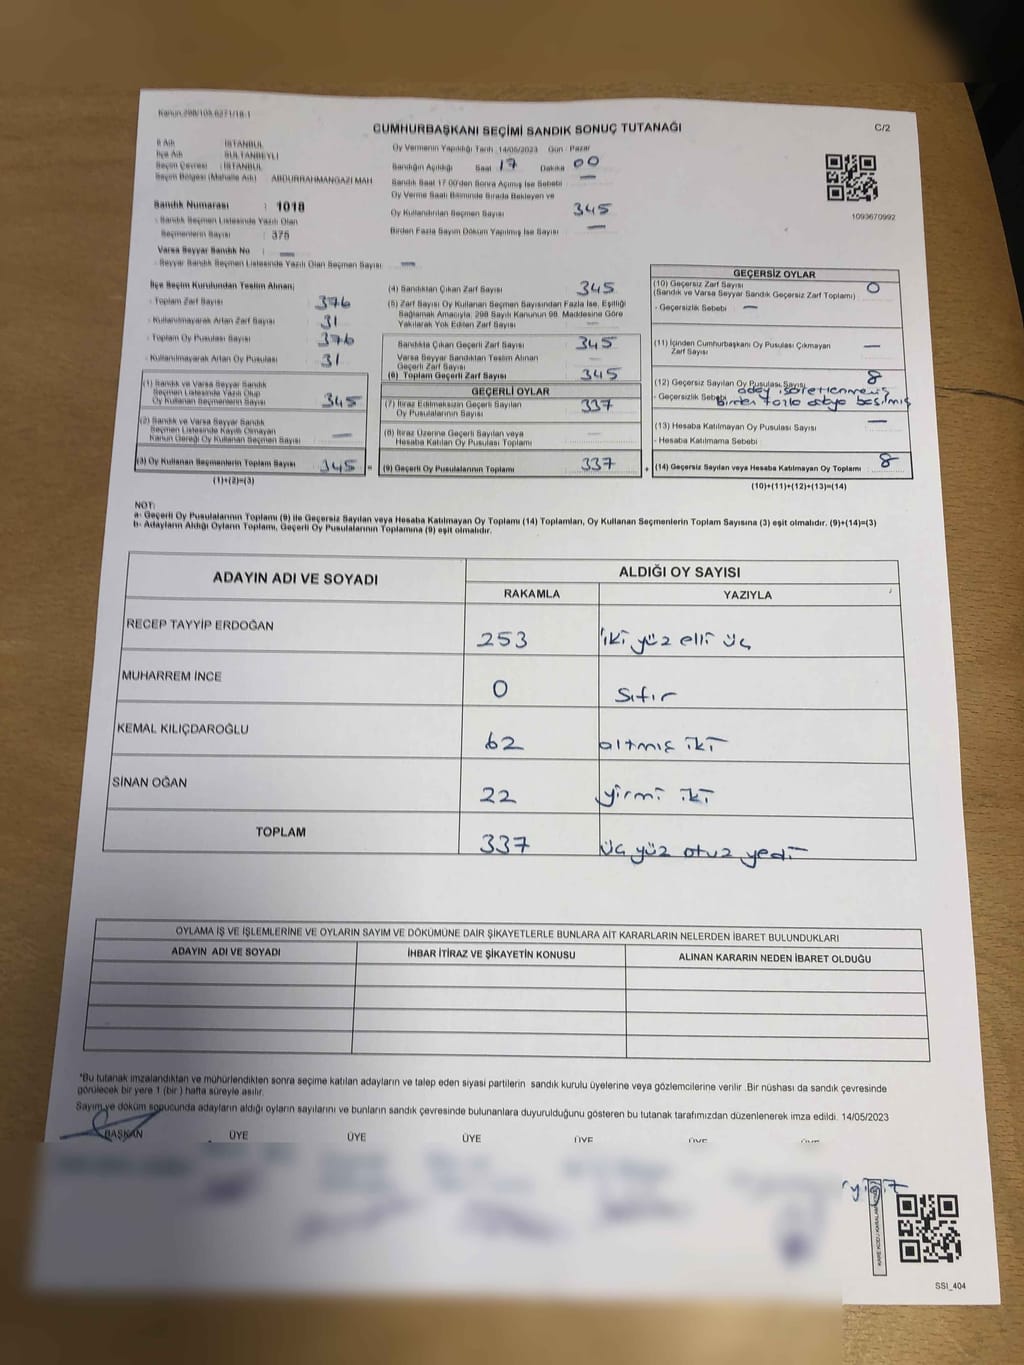 Kanun:298/105,6271/18-1
CUMHURBAŞKANI SEÇİMİ SANDIK SONUÇ TUTANAĞI
C/2
İl Adı : İSTANBUL
İlçe Adı : SULTANBEYLİ
Seçim Çevresi : İSTANBUL
Seçim Bölgesi (Mahalle Adı) : ABDURRAHMANGAZİ MAH
Sandık Numarası : 1018
- Sandık Seçmen Listesinde Yazılı Olan
Seçmenlerin Sayısı : 375
Varsa Seyyar Sandık No : —
- Seyyar Sandık Seçmen Listesinde Yazılı Olan Seçmen Sayısı : —
Oy Vermenin Yapıldığı Tarih :14/05/2023 Gün : Pazar
Sandığın Açıldığı Saat 17 Dakika 00
Sandık Saat 17:00'den Sonra Açımış İse Sebebi —
Oy Verme Saati Bitiminde Sırada Bekleyen ve
Oy Kullandırılan Seçmen Sayısı 345
Birden Fazla Sayım Döküm Yapılmış İse Sayısı —
1093670992
İlçe Seçim Kurulundan Teslim Alınan;
- Toplam Zarf Sayısı 376
- Kullanılmayarak Artan Zarf Sayısı 31
- Toplam Oy Pusulası Sayısı 376
- Kullanılmayarak Artan Oy Pusulası 31
(1) Sandık ve Varsa Seyyar Sandık
Seçmen Listesinde Yazılı Olup
Oy Kullanan Seçmenlerin Sayısı 345
(2) Sandık ve Varsa Seyyar Sandık
Seçmen Listesinde Kayıtlı Olmayan
Kanun Gereği Oy Kullanan Seçmen Sayısı —
(3) Oy Kullanan Seçmenlerin Toplam Sayısı 345 =
(1)+(2)=(3)
(4) Sandıktan Çıkan Zarf Sayısı 345
(5) Zarf Sayısı Oy Kullanan Seçmen Sayısından Fazla İse, Eşitliği
Sağlamak Amacıyla, 298 Sayılı Kanunun 98. Maddesine Göre
Yakılarak Yok Edilen Zarf Sayısı —
Sandıkta Çıkan Geçerli Zarf Sayısı 345
Varsa Seyyar Sandıktan Teslim Alınan
Geçerli Zarf Sayısı —
(6) Toplam Geçerli Zarf Sayısı 345
GEÇERLİ OYLAR
(7) İtiraz Edilmeksizin Geçerli Sayılan
Oy Pusulalarının Sayısı 337
(8) İtiraz Üzerine Geçerli Sayılan veya
Hesaba Katılan Oy Pusulası Toplamı —
(9) Geçerli Oy Pusulalarının Toplamı 337 +
GEÇERSİZ OYLAR
(10) Geçersiz Zarf Sayısı 0
(Sandık ve Varsa Seyyar Sandık Geçersiz Zarf Toplamı)
- Geçersizlik Sebebi —
(11) İçinden Cumhurbaşkanı Oy Pusulası Çıkmayan
Zarf Sayısı —
(12) Geçersiz Sayılan Oy Pusulası Sayısı 8
- Geçersizlik Sebebi aday işaretlenmemiş
Birden fazla adaya basılmış
(13) Hesaba Katılmayan Oy Pusulası Sayısı —
- Hesaba Katılmama Sebebi
(14) Geçersiz Sayılan veya Hesaba Katılmayan Oy Toplamı 8
(10)+(11)+(12)+(13)=(14)
NOT:
a- Geçerli Oy Pusulasının Toplamı (9) ile Geçersiz Sayılan veya Hesaba Katılmayan Oy Toplamı (14) Toplamları, Oy Kullanan Seçmenlerin Toplam Sayısına (3) eşit olmalıdır. (9)+(14)=(3)
b- Adayların Aldığı Oyların Toplamı, Geçerli Oy Pusulalarının Toplamına (9) eşit olmalıdır.
ADAYIN ADI VE SOYADI
ALDIĞI OY SAYISI
RAKAMLA YAZIYLA
RECEP TAYYİP ERDOĞAN 253 iki yüz elli üç
MUHARREM İNCE 0 sıfır
KEMAL KILIÇDAROĞLU 62 altmış iki
SİNAN OĞAN 22 yirmi iki
TOPLAM 337 üç yüz otuz yedi
OYLAMA İŞ VE İŞLEMLERİNE VE OYLARIN SAYIM VE DÖKÜMÜNE DAİR ŞİKAYETLERLE BUNLARA AİT KARARLARIN NELERDEN İBARET BULUNDUKLARI
ADAYIN ADI VE SOYADI İHBAR İTİRAZ VE ŞİKAYETİN KONUSU ALINAN KARARIN NEDEN İBARET OLDUĞU
*Bu tutanak imzalandıktan ve mühürlendikten sonra seçime katılan adayların ve talep eden siyasi partilerin sandık kurulu üyelerine veya gözlemcilerine verilir .Bir nüshası da sandık çevresinde
görülecek bir yere 1 (bir ) hafta süreyle asılır.
Sayım ve döküm sonucunda adayların aldığı oyların sayılarını ve bunların sandık çevresinde bulunanlara duyurulduğunu gösteren bu tutanak tarafımızdan düzenlenerek imza edildi. 14/05/2023
BAŞKAN ÜYE ÜYE ÜYE ÜYE ÜYE ÜYE
SSI_404